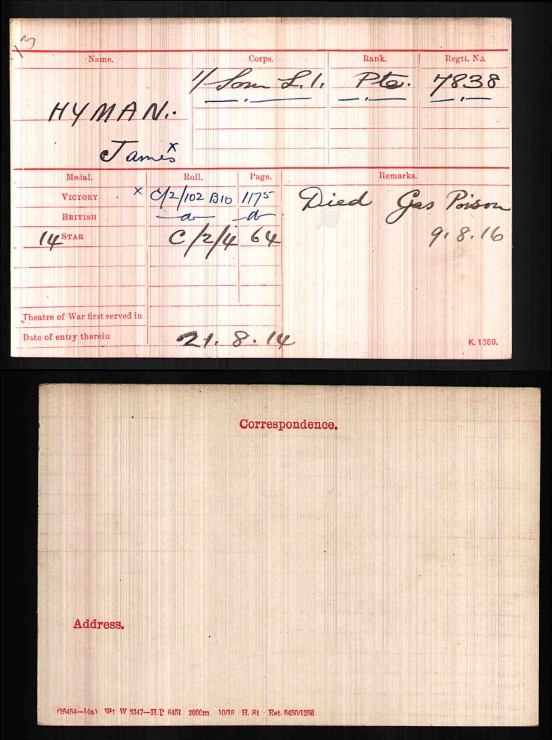 13
Name. Corps. Rank. Regtl. No.
1/Som L.I. Pte. 7838
HYMAN.
James x
Medal. Roll. Page. Remarks.
VICTORY x C/2/102 B10 1175 Died Gas Poison
BRITISH -do- -do- 9.8.16
14 STAR C/2/4 64
Theatre of War first served in
Date of entry therein 21.8.14
K. 1380.
Correspondence.
Address.
(95454—14a) Wt W 3347—H.P 6451 2000m 10/19 H. St Est. 5450/1256